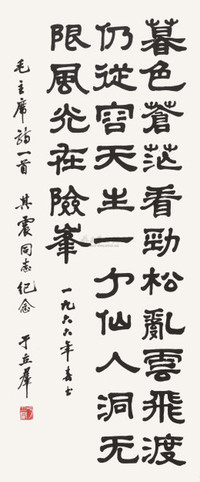 暮色蒼茫看勁松亂雲飛渡
仍從容天生一个仙人洞无
限風光在險峯
一九六六年春
毛主席詩一首 其震同志纪念 于立群